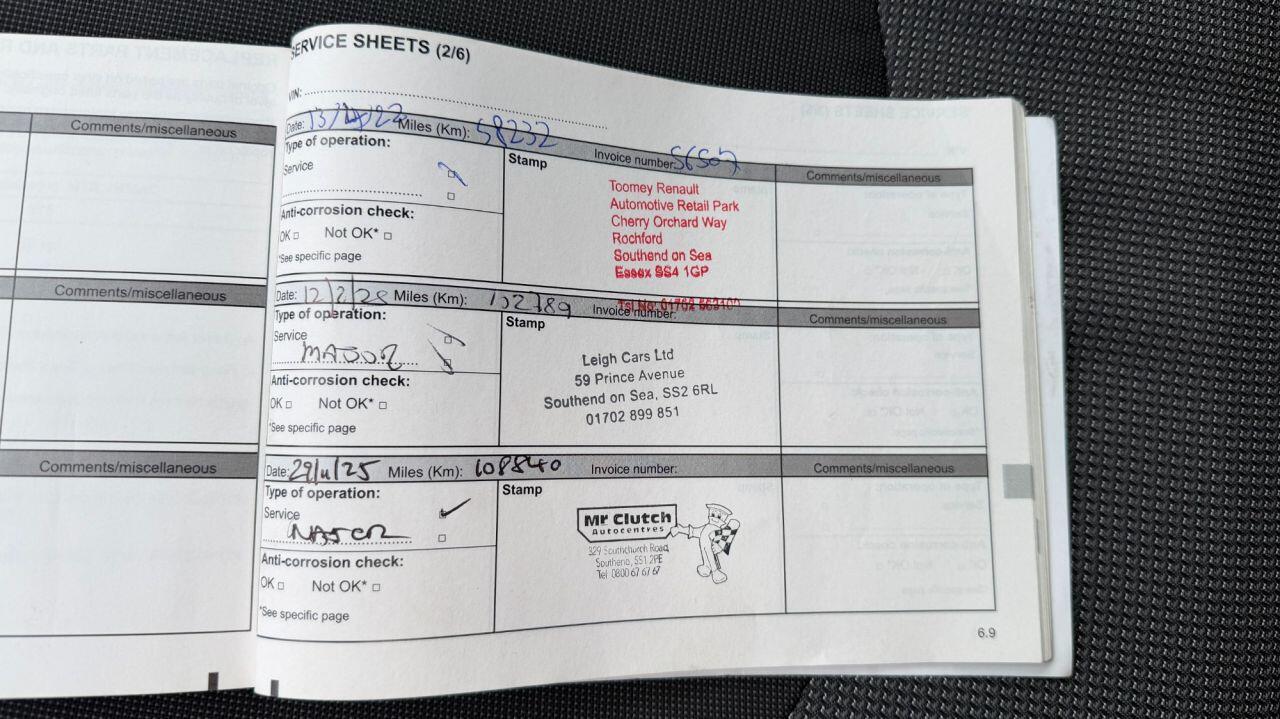 SERVICE SHEETS (2/6)
VIN:
Date: 13/ /22 Miles (Km): 58232 Invoice number: 56507
Type of operation:
Service
Anti-corrosion check:
OK Not OK*
*See specific page
Stamp
Toomey Renault
Automotive Retail Park
Cherry Orchard Way
Rochford
Southend on Sea
Essex SS4 1GP
Tel No. 01702
Comments/miscellaneous
Date: 12/2/25 Miles (Km): 102789 Invoice number:
Type of operation:
Service
MAJOR
Anti-corrosion check:
OK Not OK*
*See specific page
Stamp
Leigh Cars Ltd
59 Prince Avenue
Southend on Sea, SS2 6RL
01702 899 851
Comments/miscellaneous
Date: 29/11/25 Miles (Km): 108840 Invoice number:
Type of operation:
Service
MAJOR
Anti-corrosion check:
OK Not OK*
*See specific page
Stamp
Mr Clutch
Autocentres
329 Southchurch Road,
Southend, SS1 2PE
Tel 0800 67 67 67
Comments/miscellaneous
6.9
Comments/miscellaneous
Comments/miscellaneous
Comments/miscellaneous